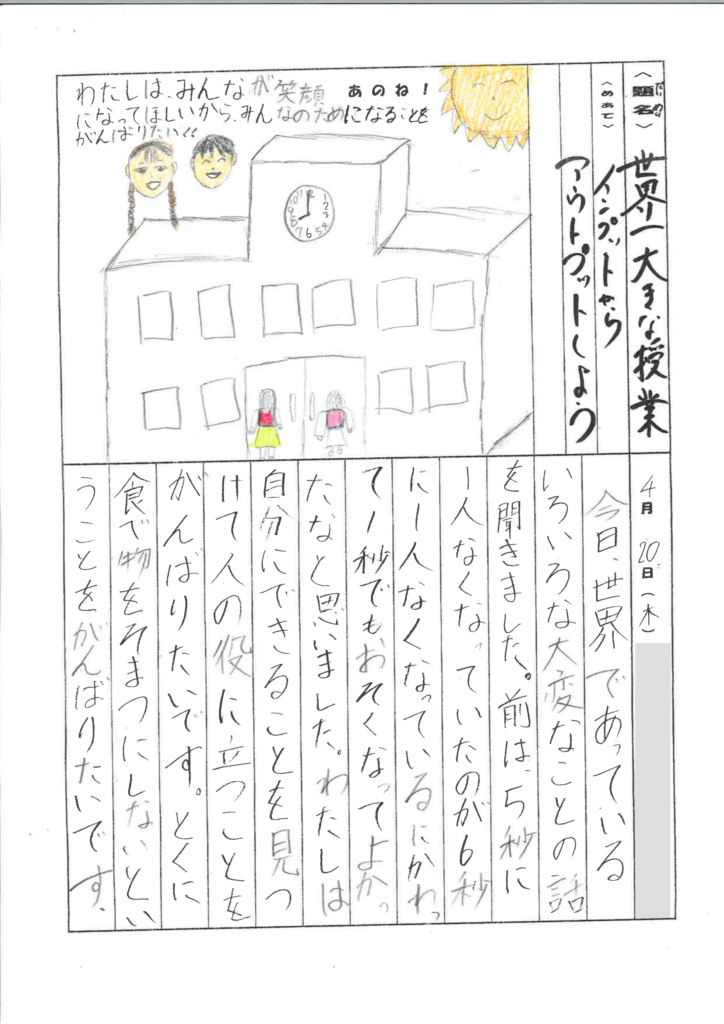 〈題名〉世界一大きな授業
だいめい
〈めあて〉インプットから
アウトプットしよう
あのね！
わたしは、みんなが笑顔
になってほしいから、みんなのためになることを
がんばりたい！！
12
1
2
3
4
5
6
7
8
9
10
11
4月20日（木）
今日、世界であっている
いろいろな大変なことの話
を聞きました。前は、5秒に
1人なくなっていたのが6秒
に1人なくなっているにかわっ
て1秒でもおそくなってよかっ
たなと思いました。わたしは
自分にできることを見つ
けて人の役に立つことを
がんばりたいです。とくに
食べ物をそまつにしないとい
うことをがんばりたいです。